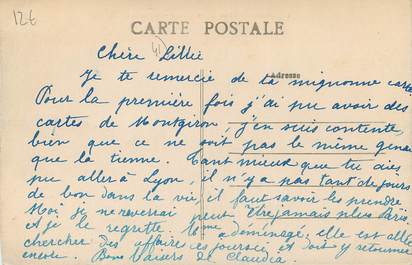 12€
CARTE POSTALE
Chère Lillie
Je te remercie de ta mignonne carte
Adresse
Pour la première fois j'ai pu avoir des
cartes de Montgiron, j'en suis contente,
bien que ce ne soit pas le même genre
que la tienne. Tant mieux que tu aies
pu aller à Lyon, il n'y a pas tant de jours
de bon dans la vie, il faut savoir les prendre.
Moi je ne reverrai peut être jamais plus Paris
et je le regrette. Mme a déménagé, elle est allée
chercher des affaires ces jours-ci, et doit y retourner
encore. Bons baisers de Claudia